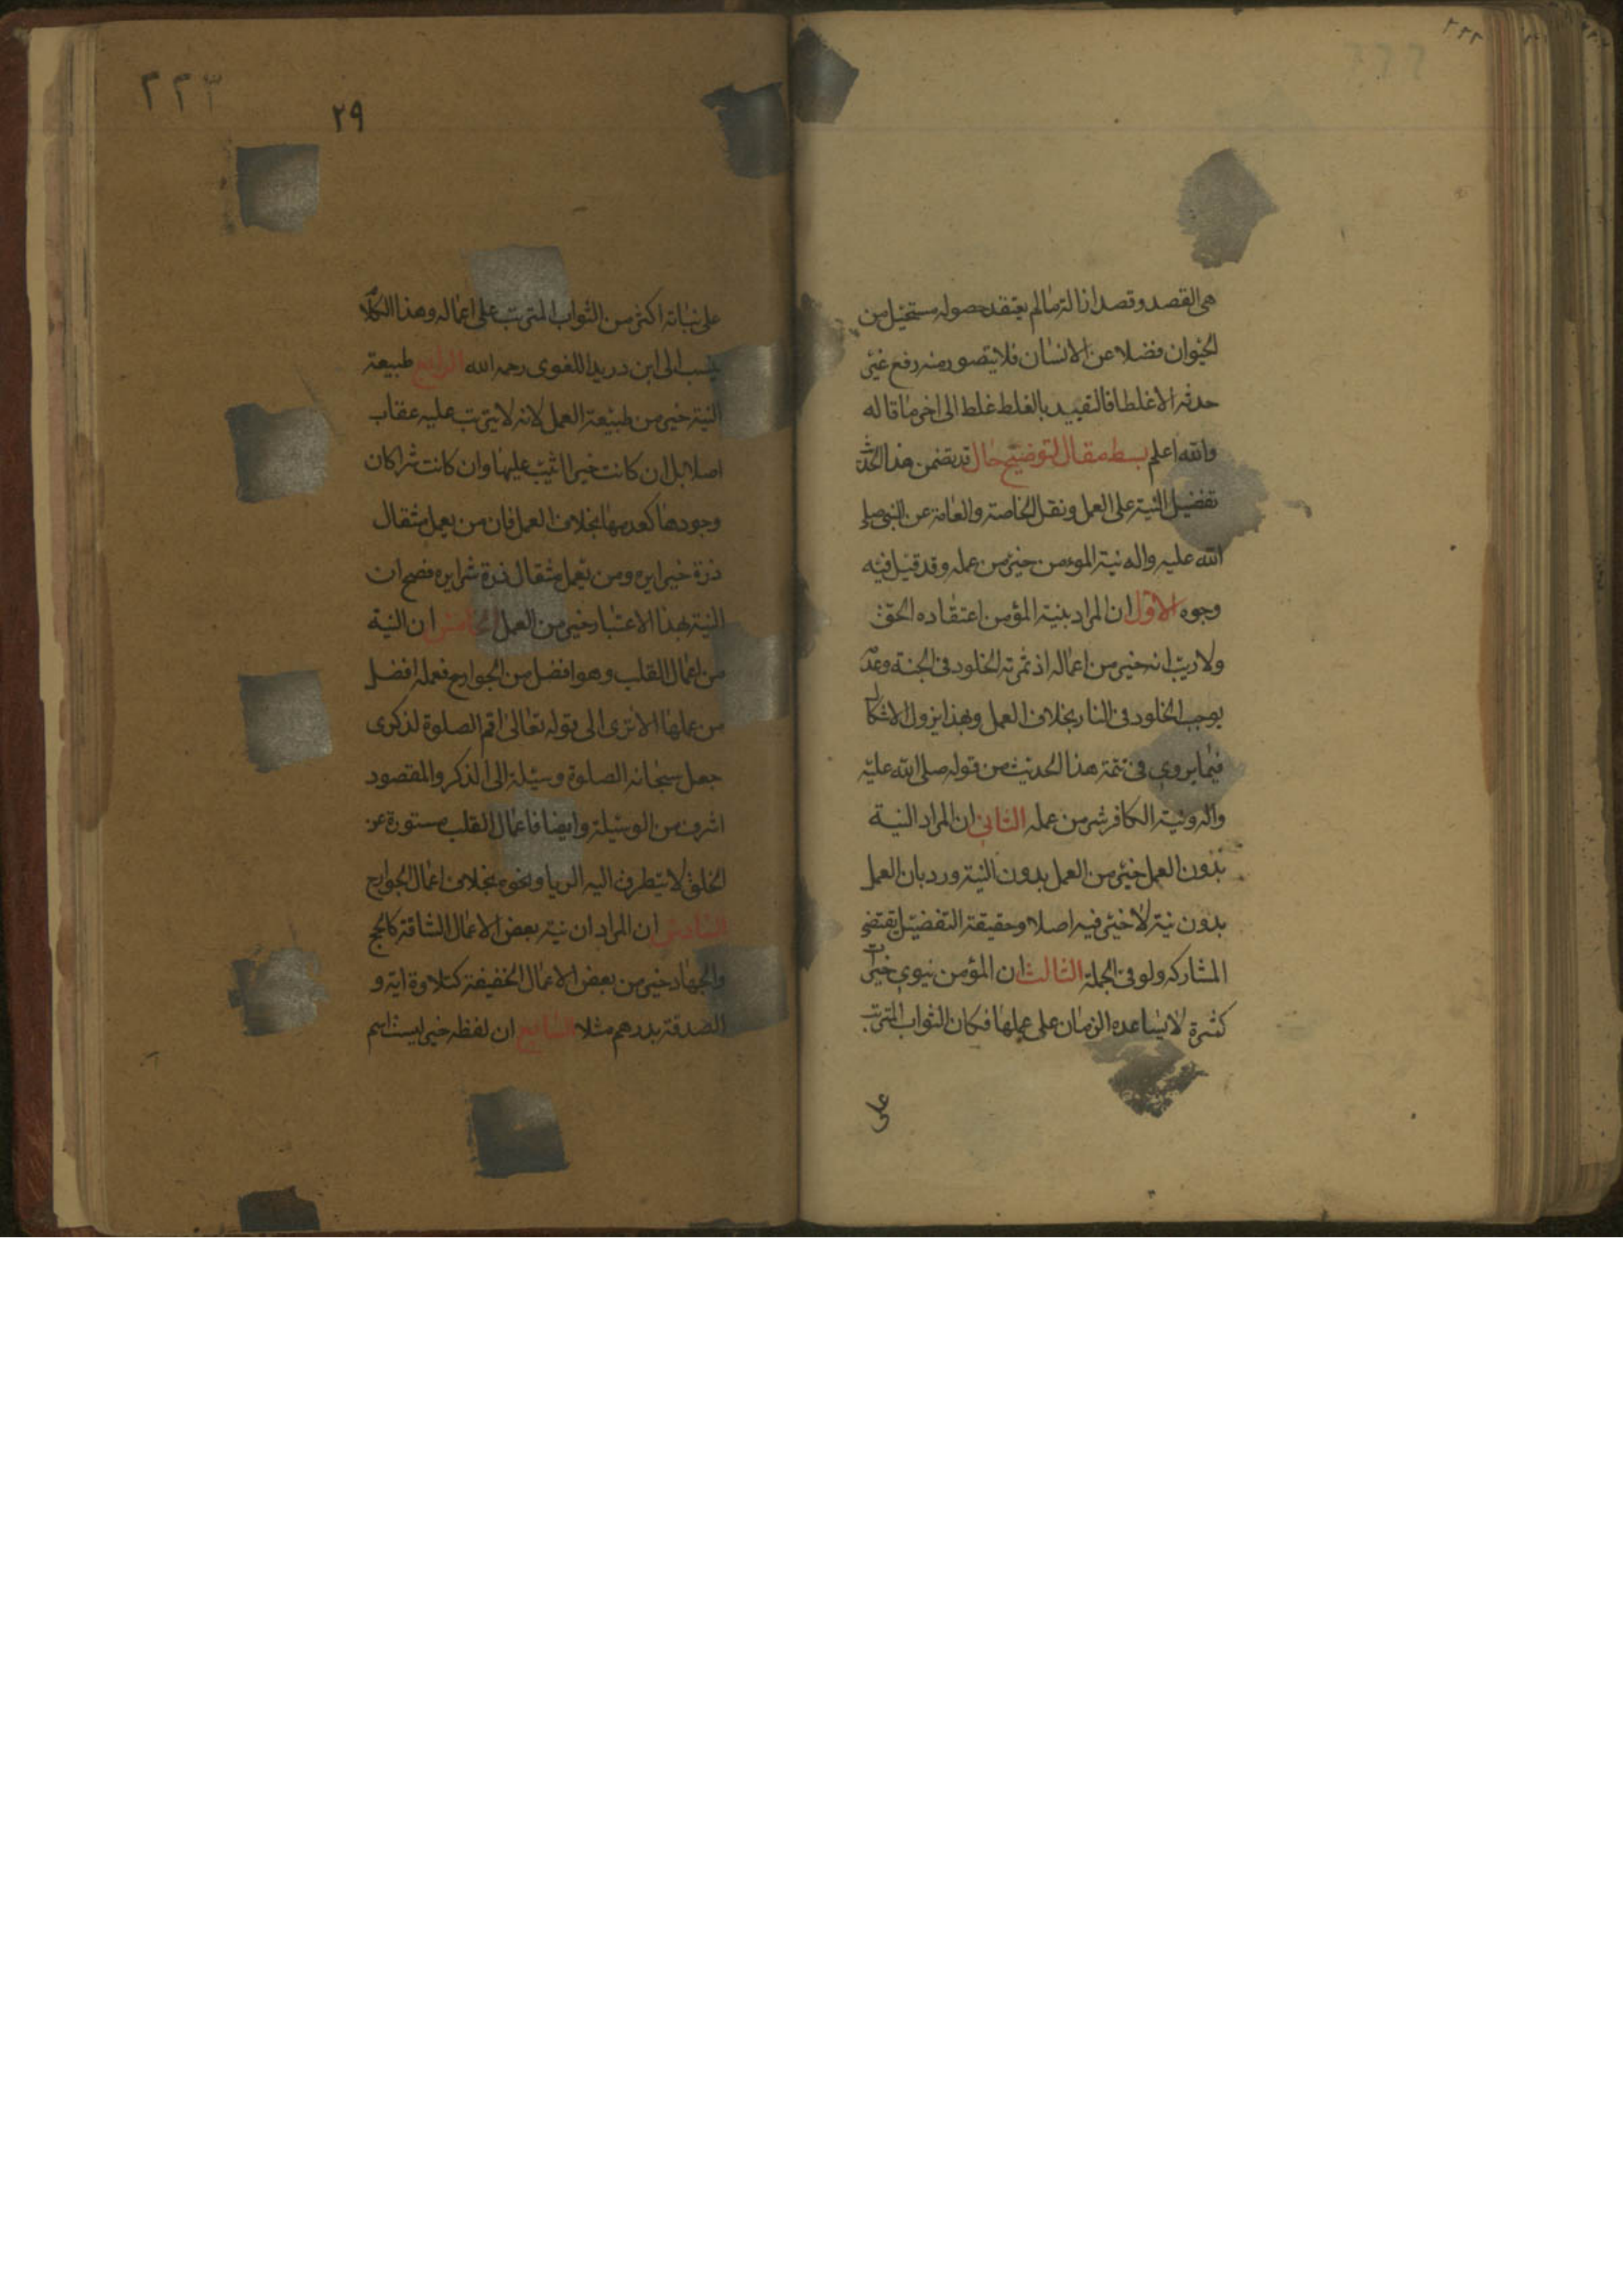 ٢٢٢
هى القصد وقصد ازالة ما لم يعتقد حصوله مستحيل من
الحيوان فضلا عن الانسان فلا يتصور منه رفع غير
حدثه الا غلطا فالتقييد بالغلط غلط الى اخر ما قاله
والله اعلم بسط مقال لتوضيح حال قد تضمن هذا الحديث
تفضيل النية على العمل ونقل الخاصة والعامة عن النبى صلى
الله عليه واله نية المؤمن خير من عمله وقد قيل فيه
وجوه الاول ان المراد بنية المؤمن اعتقاده الحق
ولا ريب انه خير من اعماله اذ ثمرته الخلود فى الجنة وعدمه
يوجب الخلود فى النار بخلاف العمل وبهذا يزول الاشكال
فيما يروى فى تتمة هذا الحديث من قوله صلى الله عليه
واله ونية الكافر شر من عمله الثانى ان المراد النية
بدون العمل خير من العمل بدون النية ورد بان العمل
بدون نية لا خير فيه اصلا وحقيقة التفضيل يقتضى
المشاركه ولو فى الجملة الثالث ان المؤمن ينوى خيرات
كثيرة لا يساعده الزمان على عملها فكان الثواب المترتب
على
٢٢٣
٢٩
على نياته اكثر من الثواب المترتب على اعماله وهذا الكلام
ينسب الى ابن دريد اللغوى رحمه الله الرابع طبيعة
النية خير من طبيعة العمل لانه لا يترتب عليه عقاب
اصلا بل ان كانت خيرا اثيب عليها وان كانت شرا كان
وجودها كعدمها بخلاف العمل فان من يعمل مثقال
ذرة خيرا يره ومن يعمل مثقال ذرة شرا يره فصح ان
النية بهذا الاعتبار خير من العمل الخامس ان النية
من اعمال القلب وهو افضل من الجوارح فعمله افضل
من عملها الا ترى الى قوله تعالى اقم الصلوة لذكرى
جعل سبحانه الصلوة وسيلة الى الذكر والمقصود
اشرف من الوسيلة وايضا فاعمال القلب مستورة عن
الخلق لا يتطرق اليه الريا ونحوه بخلاف اعمال الجوارح
السادس ان المراد ان نية بعض الاعمال الشاقة كالحج
والجهاد خير من بعض الاعمال الخفيفة كتلاوة اية و
الصدقة بدرهم مثلا السابع ان لفظه خير ليست اسم